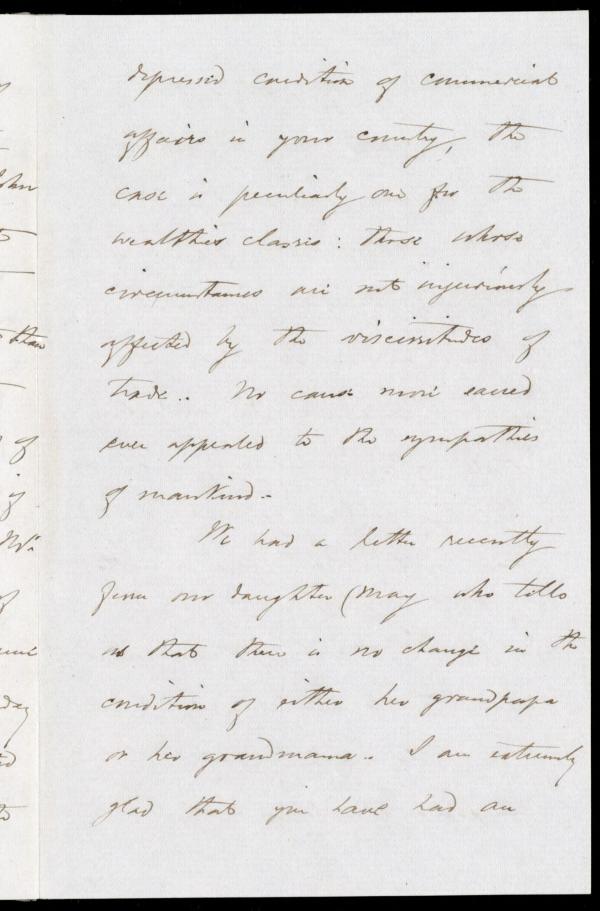 depressed condition of commercial
affairs in your country, the
case is peculiarly one for the
wealthier classes: those whose
circumstances are not injuriously
affected by the viscissitudes of
trade.. No cause more sacred
ever appealed to the sympathies
of mankind-
We had a letter recently
from our daughter (May who tells
us that there is no change in the
condition of either her grandpapa
or her grandmama.. I am extremely
glad that you have had an
John
than
of
of
Mr.
of
day